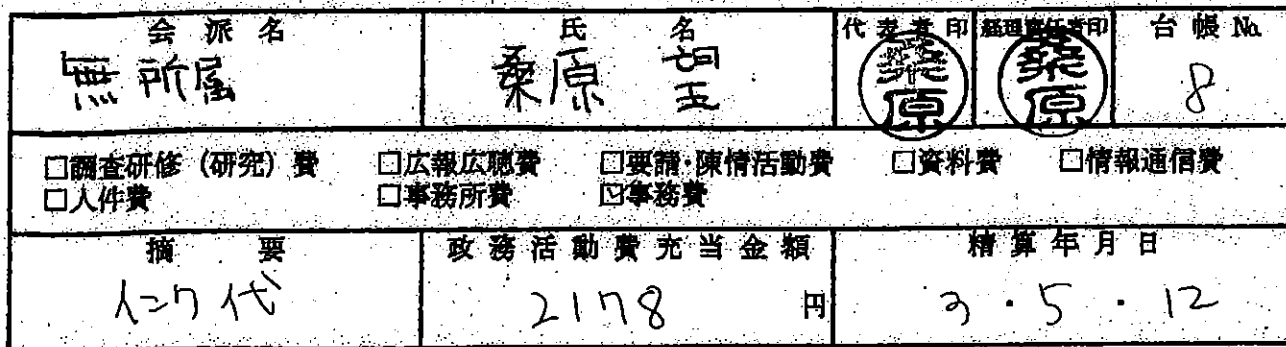 会派名 氏名 代表者印 経理責任者印 台帳No.
無所属 桑原 望 桑原 桑原 8
□調査研修(研究)費 □広報広聴費 □要請・陳情活動費 □資料費 □情報通信費
□人件費 □事務所費 ☑事務費
摘要 政務活動費充当金額 精算年月日
インク代 2178 円 3・5・12